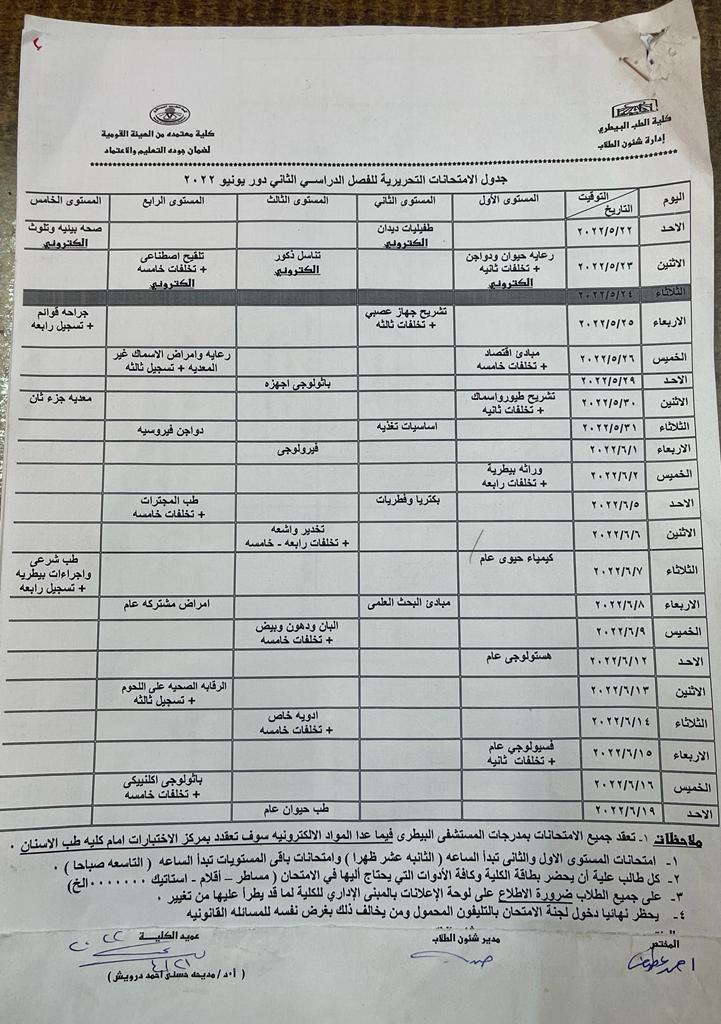 كلية الطب البيطري
إدارة شئون الطلاب
كلية معتمده من الهيئة القومية
لضمان جوده التعليم والاعتماد
جدول الامتحانات التحريرية للفصل الدراسي الثاني دور يونيو ٢٠٢٢
اليوم التوقيت التاريخ المستوى الأول المستوى الثاني المستوى الثالث المستوى الرابع المستوى الخامس
الاحد ٢٠٢٢/٥/٢٢ طفيليات ديدان الكتروني صحه بيئيه وتلوث الكتروني
الاثنين ٢٠٢٢/٥/٢٣ رعايه حيوان ودواجن + تخلفات ثانيه الكتروني تناسل ذكور الكتروني تلقيح اصطناعى + تخلفات خامسه الكتروني
الثلاثاء ٢٠٢٢/٥/٢٤
الاربعاء ٢٠٢٢/٥/٢٥ تشريح جهاز عصبي + تخلفات ثالثه جراحه قوائم + تسجيل رابعه
الخميس ٢٠٢٢/٥/٢٦ مبادئ اقتصاد + تخلفات خامسه رعايه وامراض الاسماك غير المعديه + تسجيل ثالثه
الاحد ٢٠٢٢/٥/٢٩ باثولوجى اجهزه
الاثنين ٢٠٢٢/٥/٣٠ تشريح طيورواسماك + تخلفات ثانيه معديه جزء ثان
الثلاثاء ٢٠٢٢/٥/٣١ اساسيات تغذيه دواجن فيروسيه
الاربعاء ٢٠٢٢/٦/١ فيرولوجى
الخميس ٢٠٢٢/٦/٢ وراثه بيطرية + تخلفات رابعه
الاحد ٢٠٢٢/٦/٥ بكتريا وفطريات طب المجترات + تخلفات خامسه
الاثنين ٢٠٢٢/٦/٦ تخدير واشعه + تخلفات رابعه - خامسه
الثلاثاء ٢٠٢٢/٦/٧ كيمياء حيوى عام طب شرعى واجراءات بيطريه + تسجيل رابعه
الاربعاء ٢٠٢٢/٦/٨ مبادئ البحث العلمى امراض مشتركه عام
الخميس ٢٠٢٢/٦/٩ البان ودهون وبيض + تخلفات خامسه
الاحد ٢٠٢٢/٦/١٢ هستولوجى عام
الاثنين ٢٠٢٢/٦/١٣ الرقابه الصحيه على اللحوم + تسجيل ثالثه
الثلاثاء ٢٠٢٢/٦/١٤ ادويه خاص + تخلفات خامسه
الاربعاء ٢٠٢٢/٦/١٥ فسيولوجي عام + تخلفات ثانيه
الخميس ٢٠٢٢/٦/١٦ باثولوجى اكلنيكى + تخلفات خامسه
الاحد ٢٠٢٢/٦/١٩ طب حيوان عام
ملاحظات ١- تعقد جميع الامتحانات بمدرجات المستشفى البيطرى فيما عدا المواد الالكترونيه سوف تعقدد بمركز الاختبارات امام كليه طب الاسنان .
١- امتحانات المستوى الاول والثانى تبدأ الساعه ( الثانيه عشر ظهرا ) وامتحانات باقى المستويات تبدأ الساعه ( التاسعه صباحا ) .
٢- كل طالب علية أن يحضر بطاقة الكلية وكافة الأدوات التي يحتاج أليها في الامتحان ( مساطر – أقلام - استاتيك .......الخ)
٣- على جميع الطلاب ضرورة الاطلاع على لوحة الإعلانات بالمبنى الإداري للكلية لما قد يطرأ عليها من تغيير .
٤- يحظر نهائيا دخول لجنة الامتحان بالتليفون المحمول ومن يخالف ذلك يعرض نفسه للمسائله القانونيه
المختص مدير شئون الطلاب عميد الكلية
( أ.د/ مديحه حسنى احمد درويش )